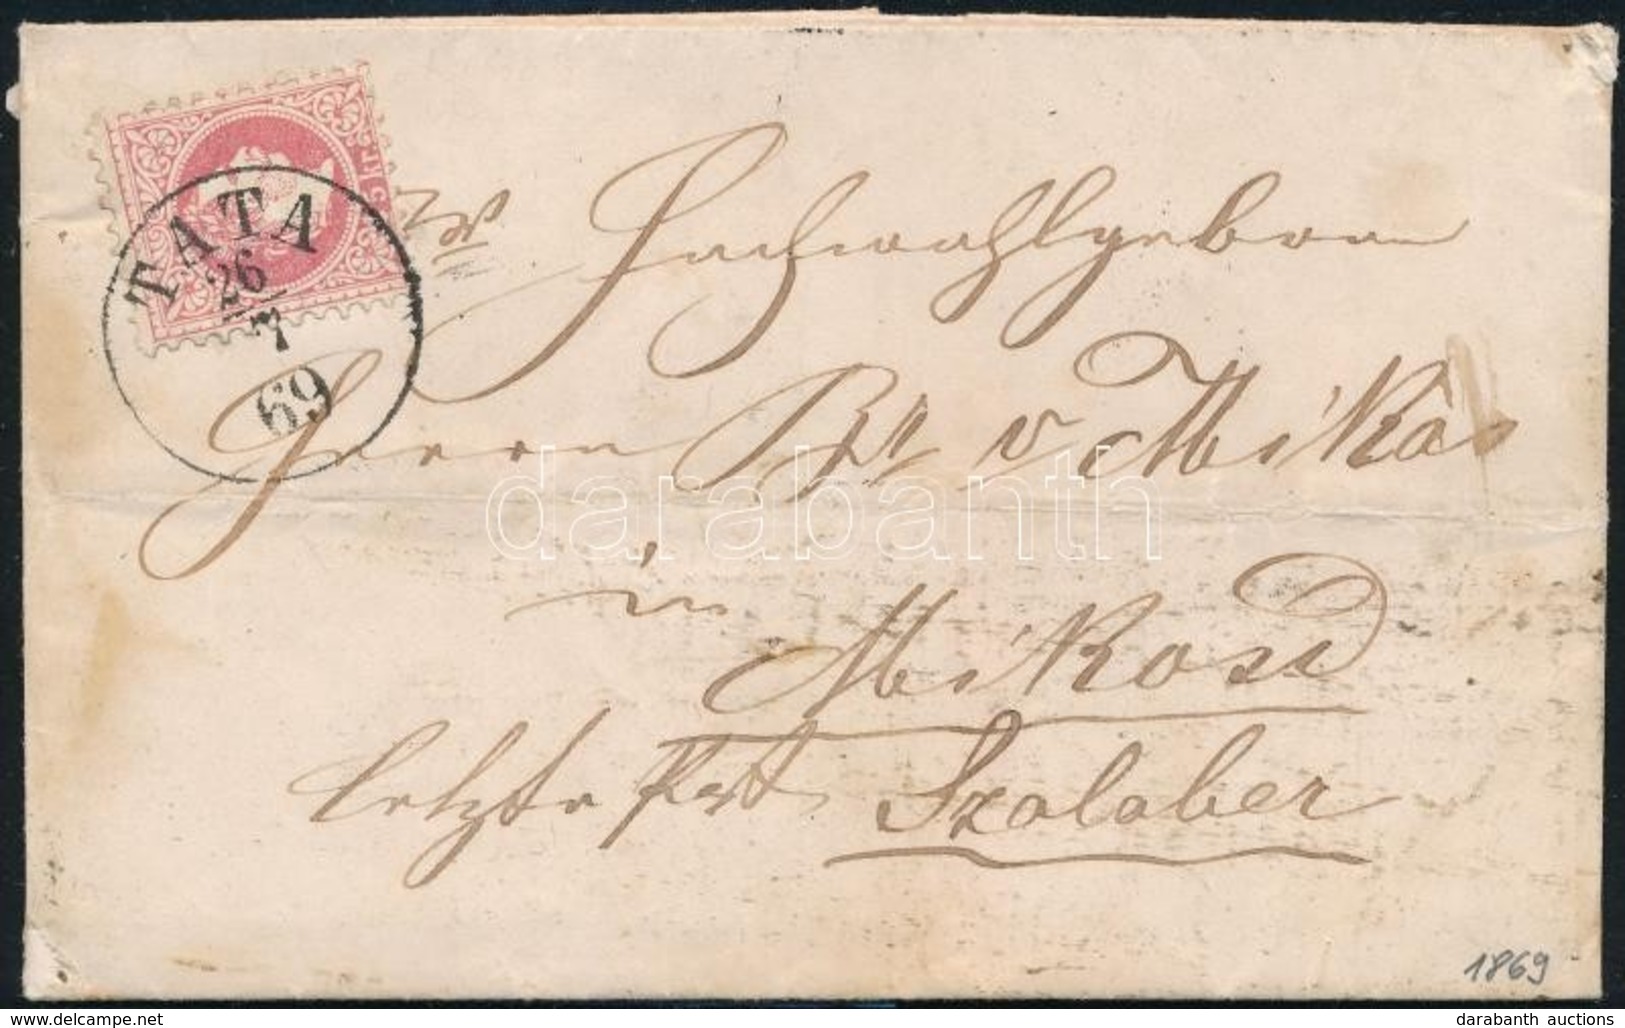 TATA
26
7
69
Hochwohlgeboren
Herrn Br v Mikos
in
Mikosd
letzte Post Szalaber
1869
darabanth
www.delcampe.net
darabanth auctions